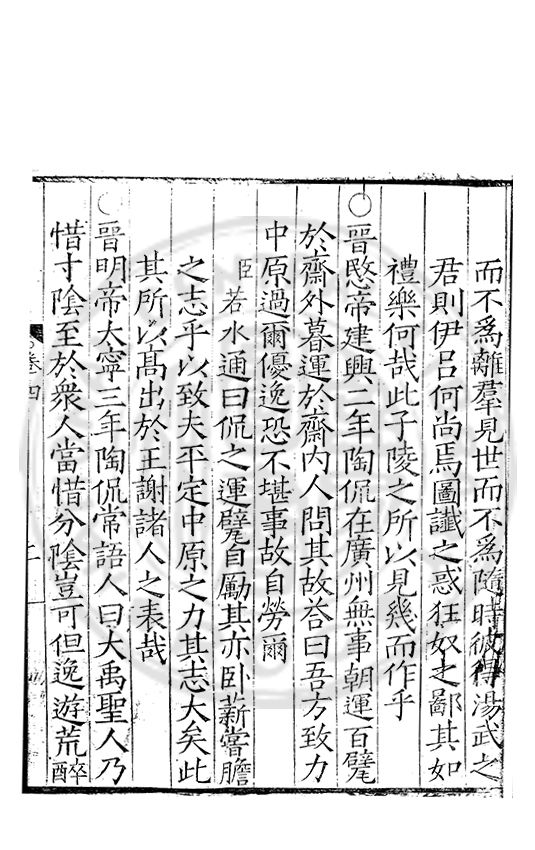 而不爲離羣見世而不爲隨時彼得湯武之
君則伊呂何尚焉圖讖之惑狂奴之鄙其如
禮樂何哉此子陵之所以見幾而作乎
○晉愍帝建興二年陶侃在廣州無事朝運百甓
於齋外暮運於齋內人問其故答曰吾方致力
中原過爾優逸恐不堪事故自勞爾
臣若水通曰侃之運甓自勵其亦卧薪嘗膽
之志乎以致夫平定中原之力其志大矣此
其所以髙出於王謝諸人之表哉
○晉明帝太寧三年陶侃常語人曰大禹聖人乃
惜寸陰至於衆人當惜分陰豈可但逸遊荒醉
卷四